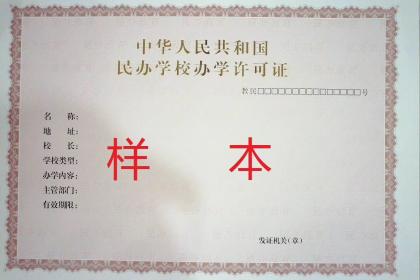 中华人民共和国
民办学校办学许可证
教民□□□□□□□□□□□□□□□号
名　　称：
地　　址：
校　　长：
学校类型：
办学内容：
主管部门：
有效期限：
样　本
发证机关（章）